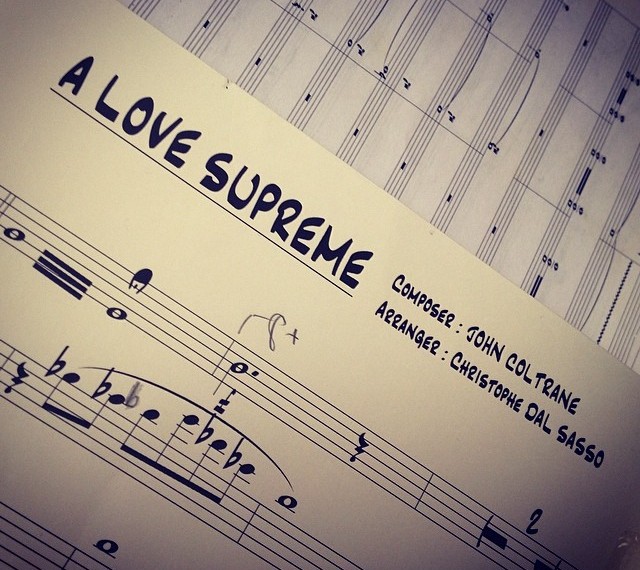 A LOVE SUPREME
COMPOSER : JOHN COLTRANE
ARRANGER : CHRISTOPHE DAL SASSO
8+
2